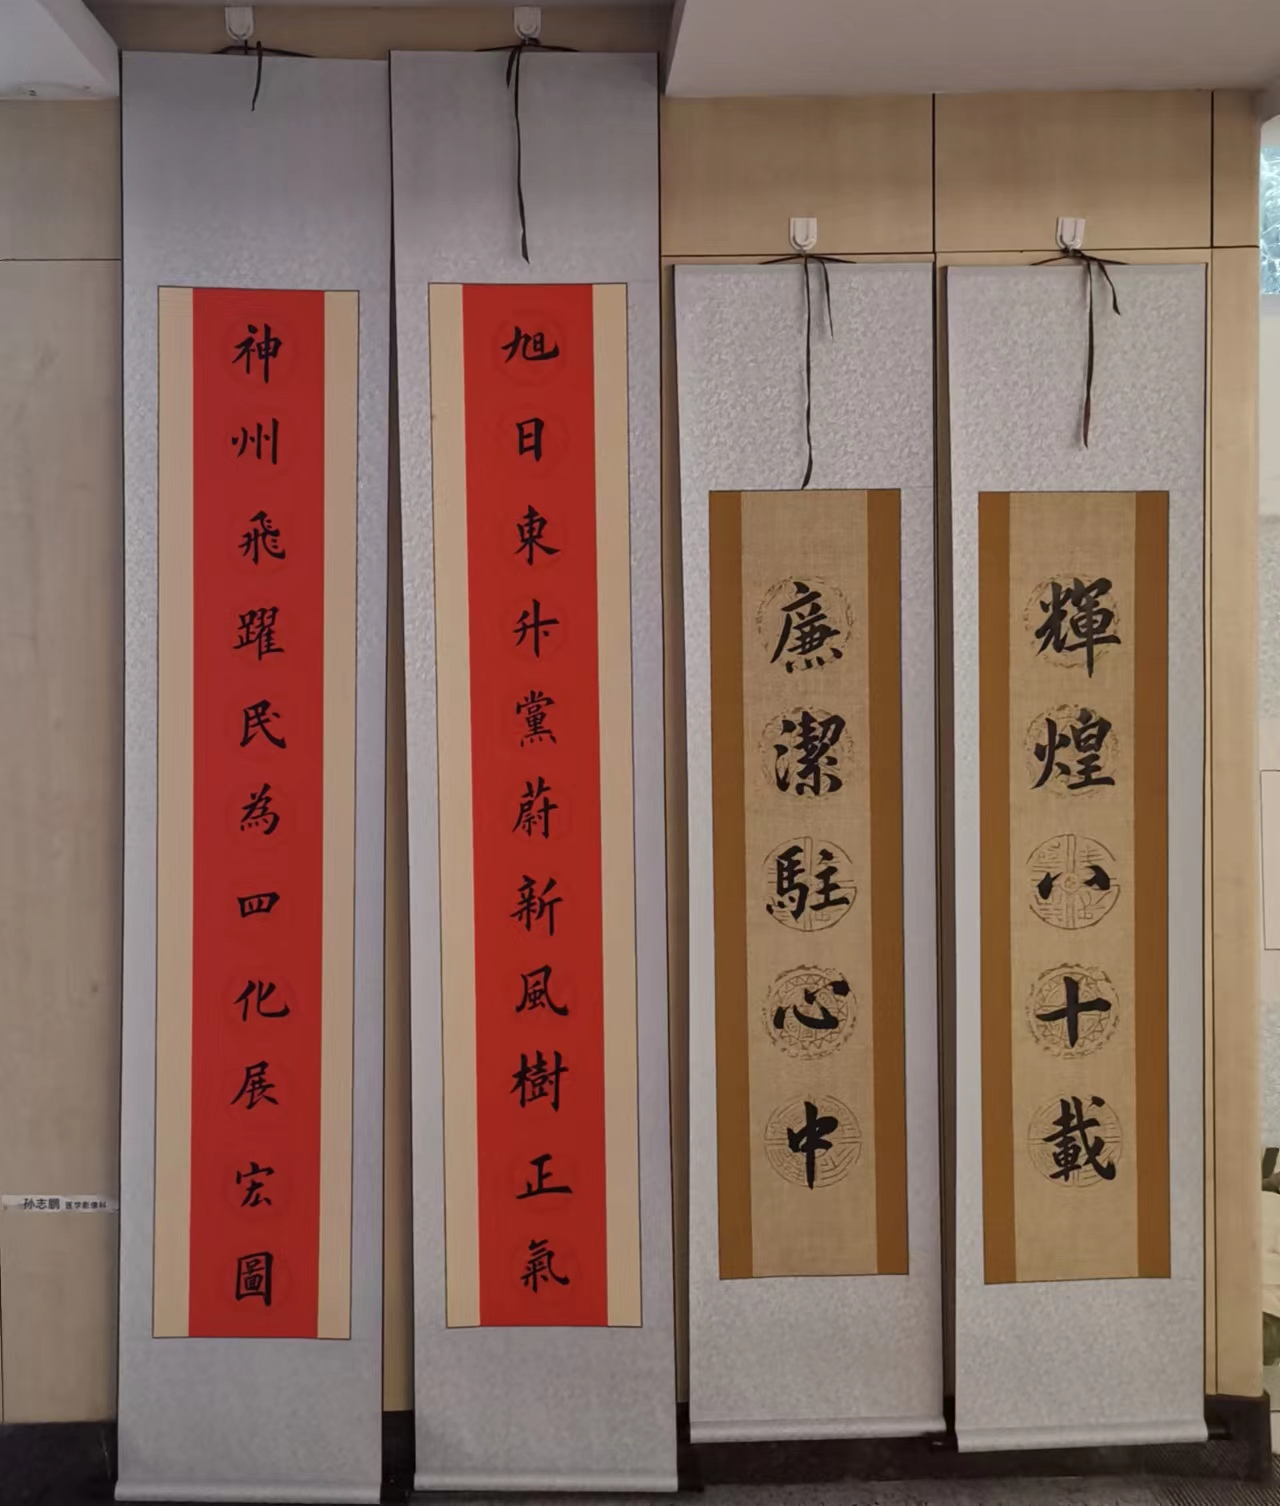 輝煌八十載
廉潔駐心中
旭日東升黨蔚新風樹正氣
神州飛躍民為四化展宏圖
孙志鹏 医学影像科